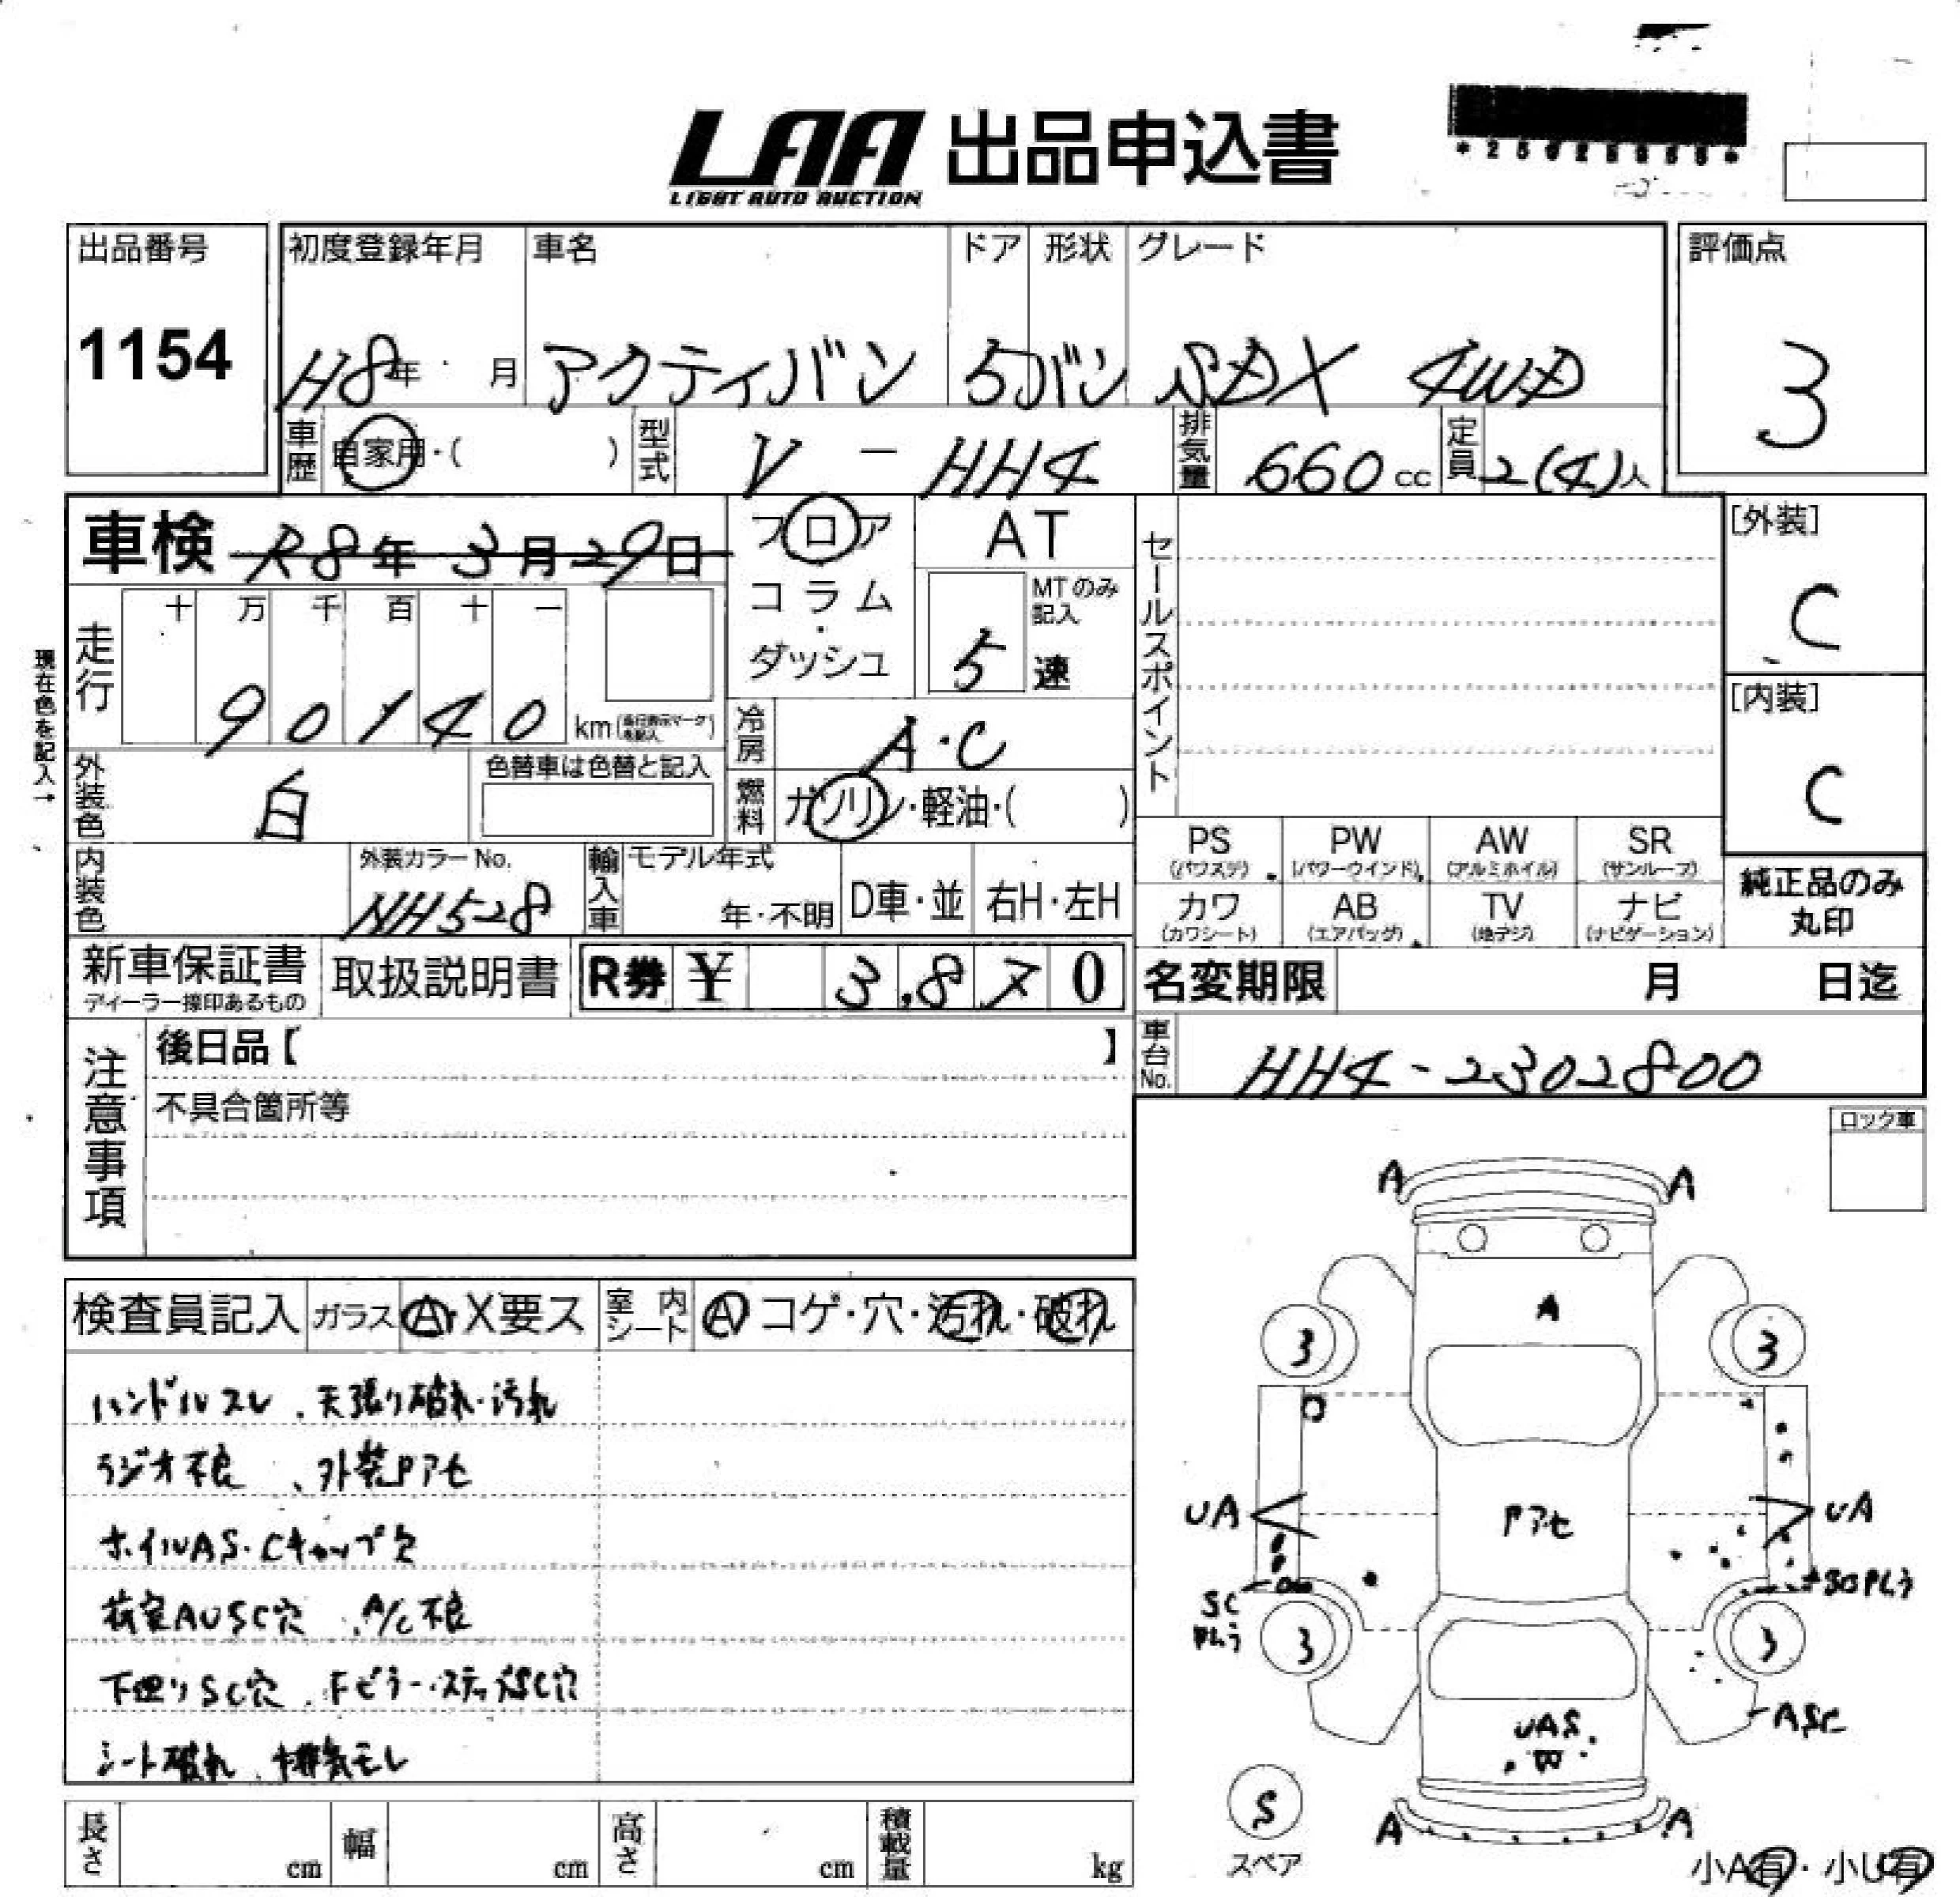 LAA 出品申込書
LIGHT AUTO AUCTION
出品番号 初度登録年月 車名 ドア 形状 グレード 評価点
1154 H8年 月 アクティバン 5 バン SDX 4WD 3
車歴 自家用・( ) 型式 V - HH4 排気量 660cc 定員 2(4)人
車検 R8年 3月29日 フロア AT セールスポイント [外装]
コラム・ MTのみ記入 C
ダッシュ 5速
現在色を記入→
走行 十 万 千 百 十 一
90140 km [内装]
冷房 A・C C
外装色 白 色替車は色替と記入 燃料 ガソリン・軽油・( )
PS PW AW SR
(パワステ) (パワーウインド) (アルミホイル) (サンルーフ)
内装色 外装カラーNo. NH528 輸入車 モデル年式 年・不明 D車・並 右H・左H
カワ AB TV ナビ 純正品のみ
(カワシート) (エアバッグ) (地デジ) (ナビゲーション) 丸印
新車保証書 取扱説明書 R券 ¥ 3,870 名変期限 月 日迄
ディーラー捺印あるもの
注意事項 後日品【 】 車台No. HH4-2302800
不具合箇所等
ロック車
A A
検査員記入 ガラス A・X要ス 室内シート A コゲ・穴・汚れ・破れ
A
3 3
ハンドルスレ、天張り破れ・汚れ
ラジオ不良、外装Pアセ
UA Pアセ UA
ホイルAS・Cキャップ欠
SC
荷室AUSC穴、A/C不良
3 3
下廻りSC穴、Fピラー・ステップSC穴
ASC
UAS
W
シート破れ、排気モレ
S
スペア
A A
長さ cm 幅 cm 高さ cm 積載量 kg
小A有・小U有